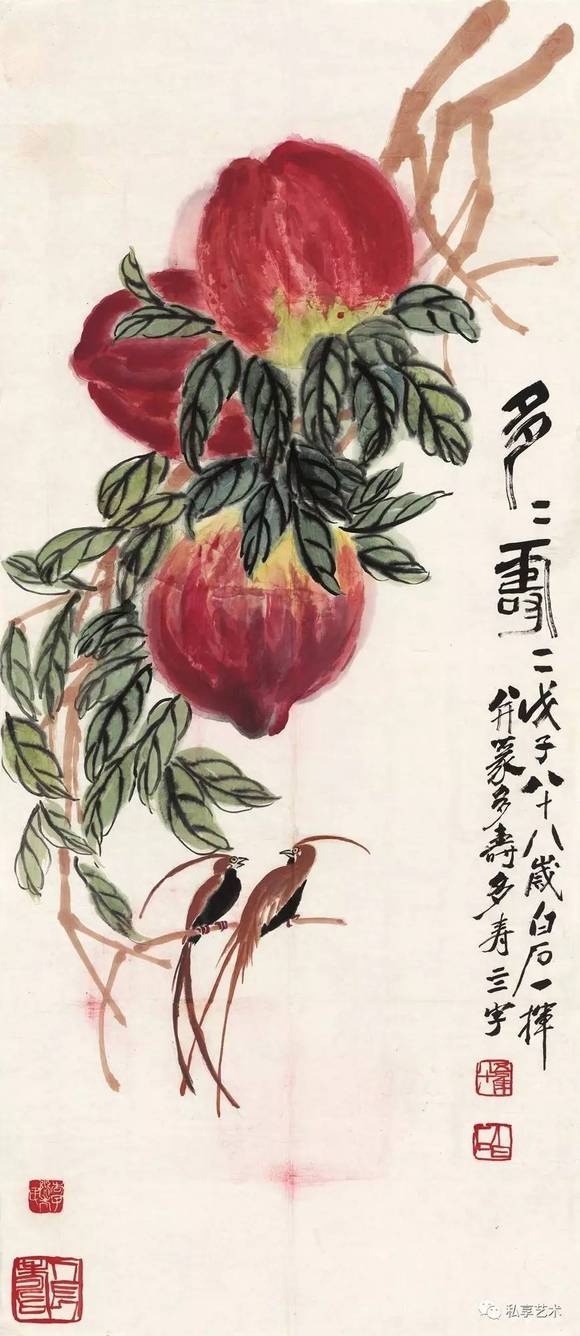 多二壽二
戊子八十八歲白石一揮
并篆多壽多寿亖字
私享艺术